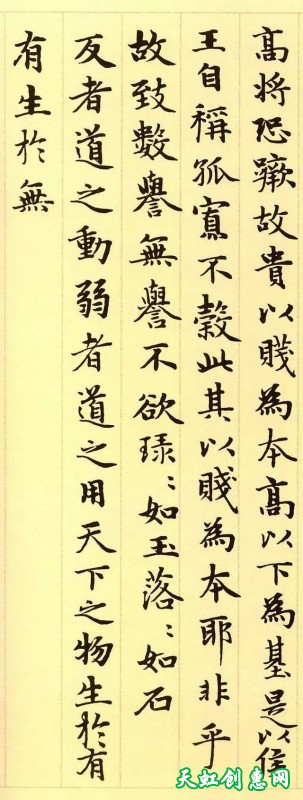 高将恐蹶故貴以賤為本高以下為基是以侯
王自稱孤寡不穀此其以賤為本耶非乎
故致數譽無譽不欲琭〻如玉落〻如石
反者道之動弱者道之用天下之物生於有
有生於無
天虹创惠网